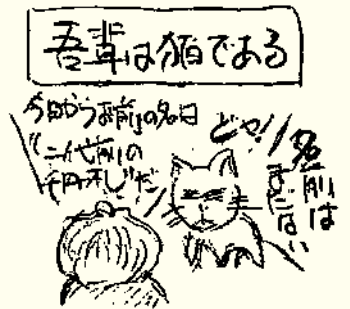 吾輩は猫である
今日からお前の名は
“二代前の
千円札”だ
ドヤ!!
名前は
まだない